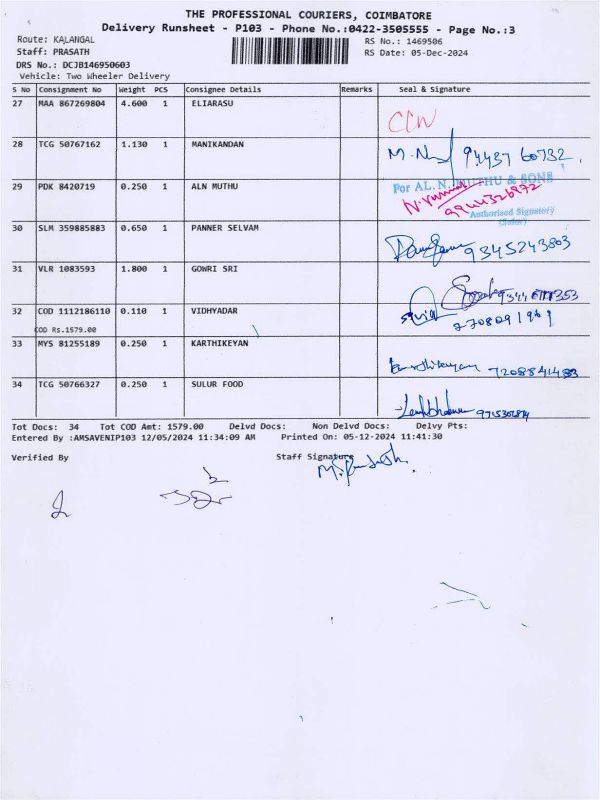 THE PROFESSIONAL COURIERS, COIMBATORE
Delivery Runsheet - P103 - Phone No.:0422-3505555 - Page No.:3
Route: KALANGAL
RS No.: 1469506
Staff: PRASATH
RS Date: 05-Dec-2024
DRS No.: DCJB146950603
Vehicle: Two Wheeler Delivery
S No Consignment No Weight PCS Consignee Details Remarks Seal & Signature
27 MAA 867269804 4.600 1 ELIARASU
28 TCG 50767162 1.130 1 MANIKANDAN 94437 60732
29 PDK 8420719 0.250 1 ALN MUTHU
For AL. N. MUTHU & SONS
Authorised Signatory
30 SLM 359885883 0.650 1 PANNER SELVAM 9345243803
31 VLR 1083593 1.800 1 GOWRI SRI
32 COD 1112186110 0.110 1 VIDHYADAR
COD Rs.1579.00
33 MYS 81255189 0.250 1 KARTHIKEYAN
34 TCG 50766327 0.250 1 SULUR FOOD
Tot Docs: 34 Tot COD Amt: 1579.00 Delvd Docs: Non Delvd Docs: Delvy Pts:
Entered By :AMSAVENIP103 12/05/2024 11:34:09 AM Printed On: 05-12-2024 11:41:30
Verified By Staff Signature